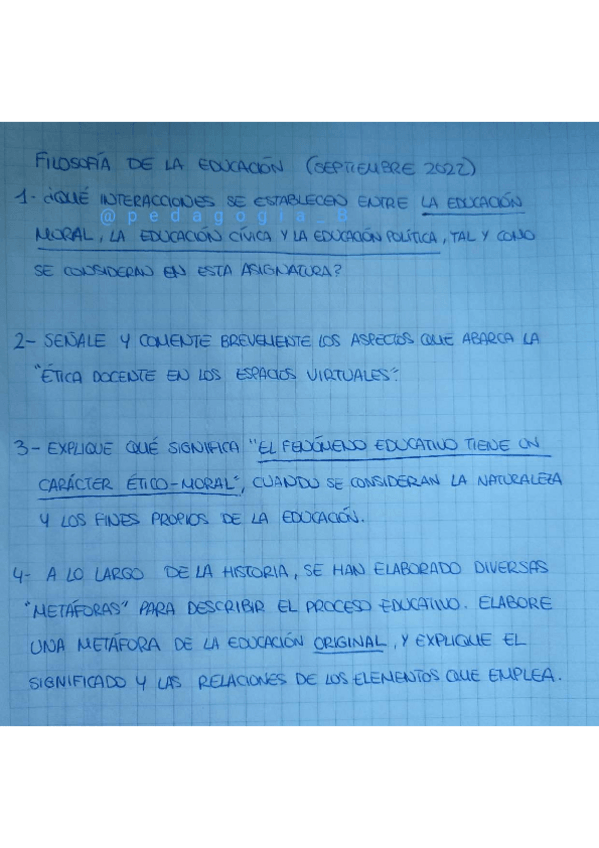 FILOSOFÍA DE LA EDUCACIÓN (SEPTIEMBRE 2022)
1- ¿QUÉ INTERACCIONES SE ESTABLECEN ENTRE LA EDUCACIÓN
@pedagogia_B
MORAL, LA EDUCACIÓN CÍVICA Y LA EDUCACIÓN POLÍTICA, TAL Y COMO
SE CONSIDERAN EN ESTA ASIGNATURA?
2- SEÑALE Y COMENTE BREVEMENTE LOS ASPECTOS QUE ABARCA LA
"ÉTICA DOCENTE EN LOS ESPACIOS VIRTUALES".
3- EXPLIQUE QUÉ SIGNIFICA "EL FENÓMENO EDUCATIVO TIENE UN
CARÁCTER ÉTICO-MORAL", CUANDO SE CONSIDERAN LA NATURALEZA
Y LOS FINES PROPIOS DE LA EDUCACIÓN.
4- A LO LARGO DE LA HISTORIA, SE HAN ELABORADO DIVERSAS
"METÁFORAS" PARA DESCRIBIR EL PROCESO EDUCATIVO. ELABORE
UNA METÁFORA DE LA EDUCACIÓN ORIGINAL, Y EXPLIQUE EL
SIGNIFICADO Y LAS RELACIONES DE LOS ELEMENTOS QUE EMPLEA.